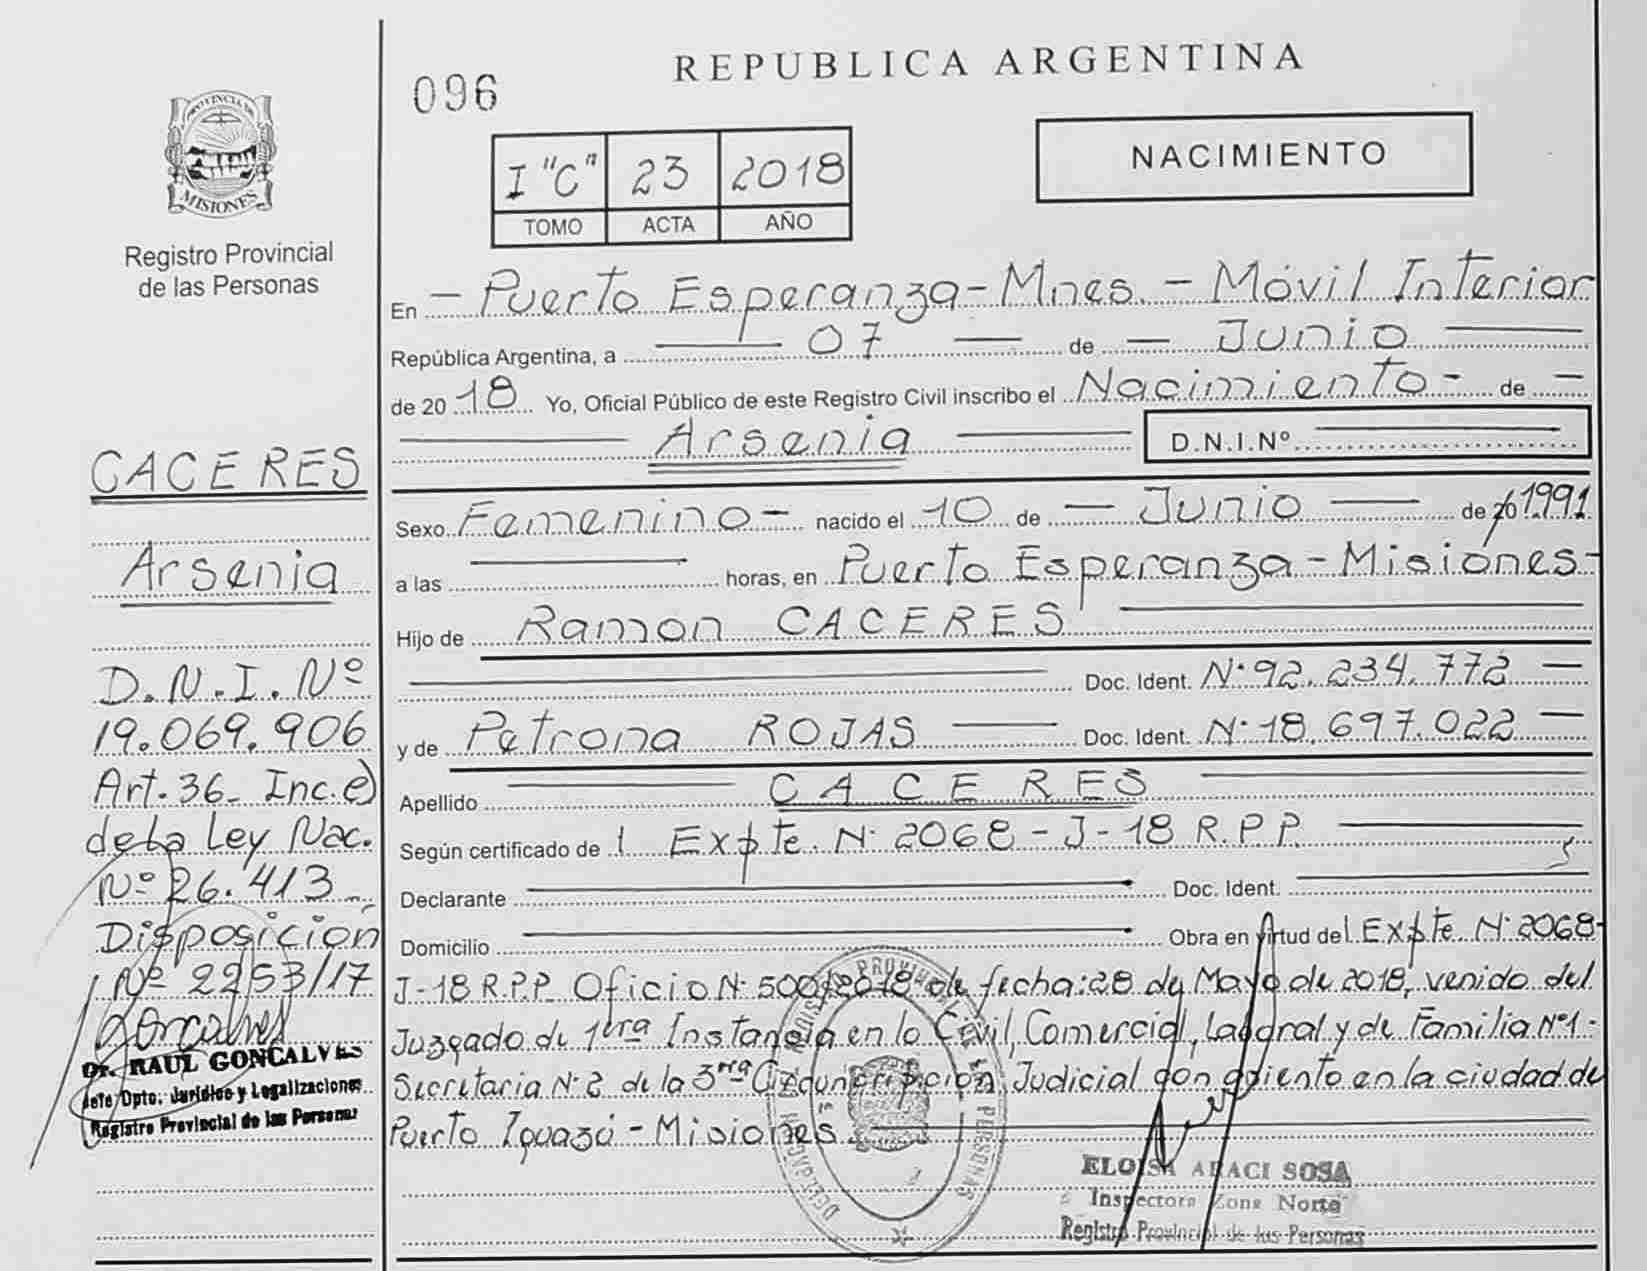 PROVINCIA DE
MISIONES
Registro Provincial
de las Personas
CACERES
Arsenia
D.N.I. Nº
19.069.906
Art. 36- Inc. e)
de la Ley Nac.
Nº 26.413
Disposición
Nº 2253/17
Dr. RAUL GONCALVES
Jefe Dpto. Jurídico y Legalizaciones
Registro Provincial de las Personas
096
REPUBLICA ARGENTINA
I "C" 23 2018
TOMO ACTA AÑO
NACIMIENTO
En - Puerto Esperanza - Mnes. - Móvil Interior
República Argentina, a 07 de Junio
de 20 18 Yo, Oficial Público de este Registro Civil inscribo el Nacimiento - de -
Arsenia D.N.I.Nº
Sexo Femenino - nacido el 10 de - Junio de 20 1991
a las horas, en Puerto Esperanza - Misiones -
Hijo de Ramon CACERES
Doc. Ident. Nº 92.234.772 -
y de Petrona ROJAS Doc. Ident. Nº 18.697.022 -
Apellido CACERES
Según certificado de l Expte. Nº 2068 - J - 18 R.P.P.
Declarante Doc. Ident.
Domicilio Obra en virtud del Expte. Nº 2068-
J-18 R.P.P. Oficio Nº 500/2018 de fecha: 28 de Mayo de 2018, venido del
Juzgado de 1era Instancia en lo Civil, Comercial, Laboral y de Familia Nº1 -
Secretaria Nº 2 de la 3ra Circunscripcion Judicial con asiento en la ciudad de
Puerto Iguazú - Misiones
ELOISA ARACI SOSA
Inspectora Zona Norte
Registro Provincial de las Personas